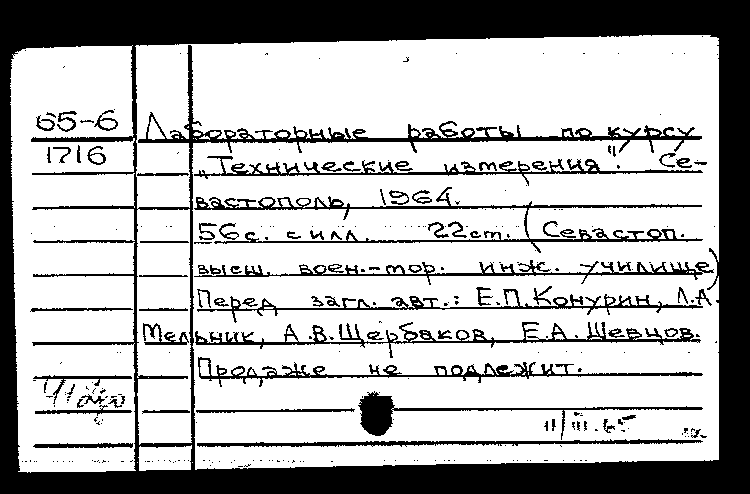 65-6 Лабораторные работы по курсу
1716 „Технические измерения". Се-
вастополь, 1964.
56с. с илл. 22см. (Севастоп.
высш. воен.-мор. инж. училище)
Перед загл. авт.: Е.П.Конурин, Л.А.
Мельник, А.В.Щербаков, Е.А.Шевцов.
Продаже не подлежит.
11/III.65